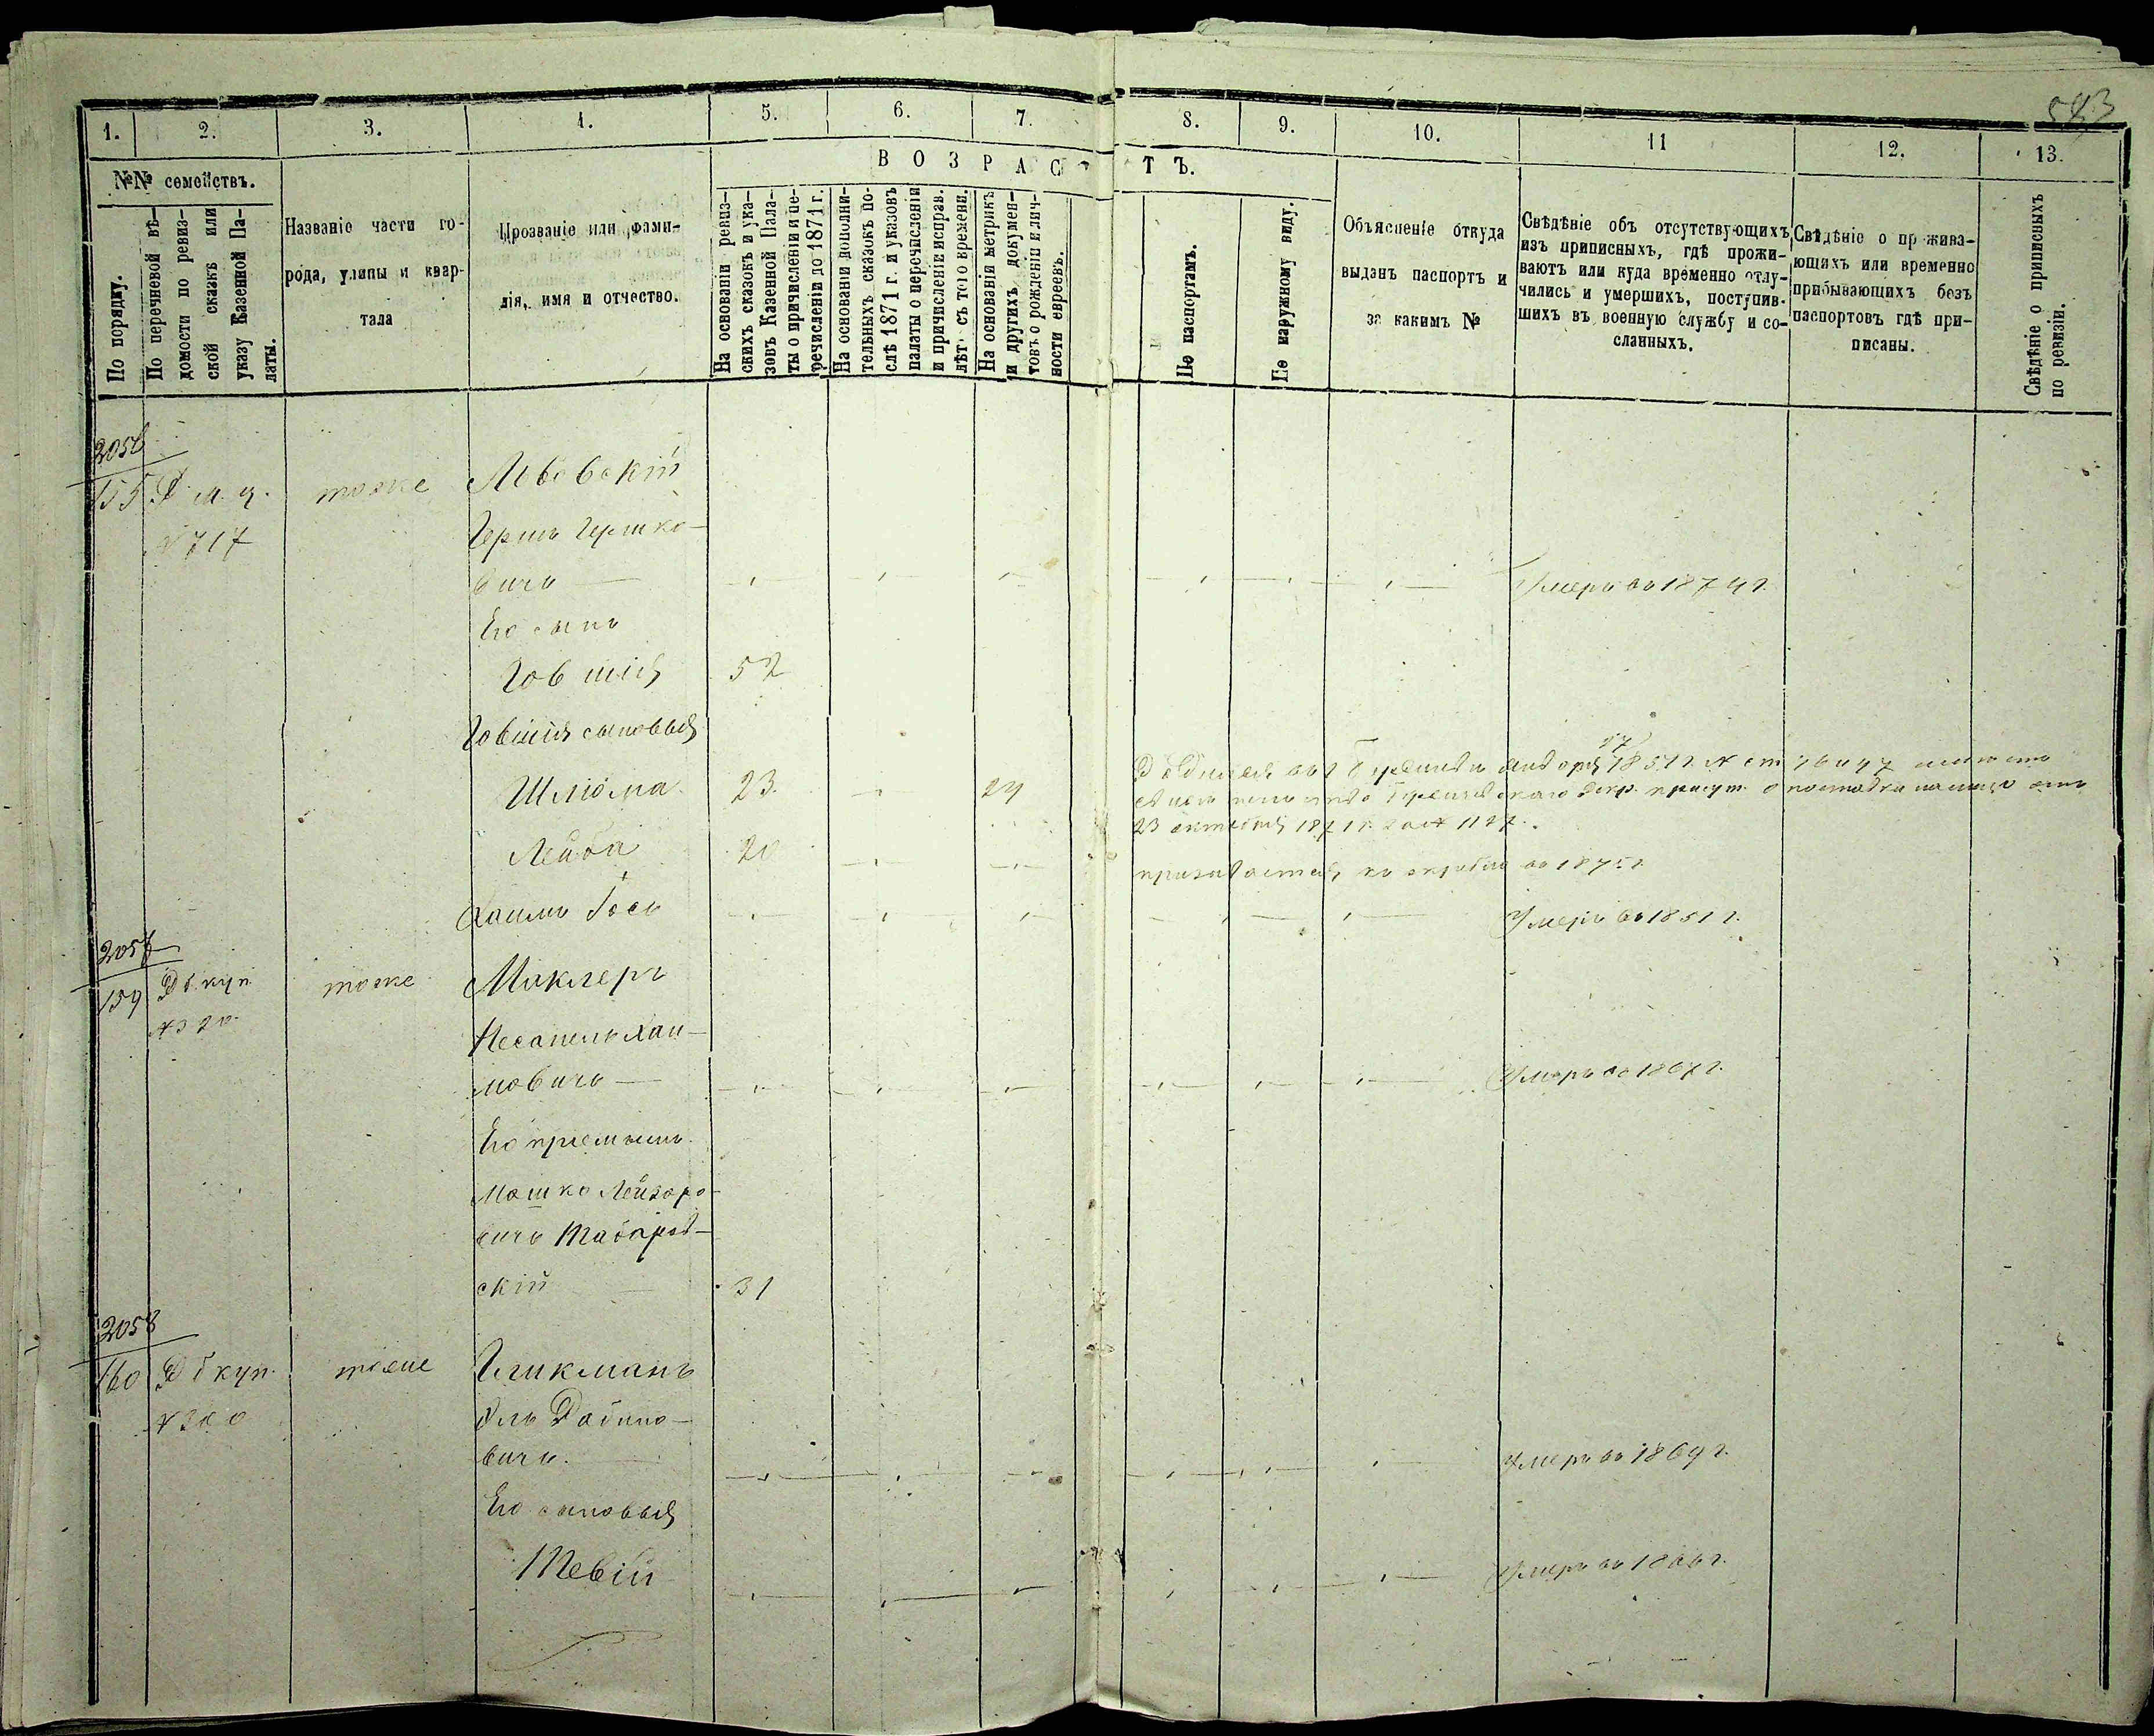 543
1. 2. 3. 4. 5. 6. 7. 8. 9. 10. 11 12. 13.
№№ семействъ.
По порядку.
По перечневой вѣ-
домости по ревиз-
ской сказкѣ или
указу Казенной Па-
латы.
Названіе части го-
рода, улицы и квар-
тала
Прозваніе или фами-
лія, имя и отчество.
ВОЗРАСТЪ.
На основаніи ревиз-
скихъ сказокъ и ука-
зовъ Казенной Пала-
ты о причисленіи и пе-
речисленіи до 1871 г.
На основаніи дополни-
тельныхъ сказокъ по-
слѣ 1871 г. и указовъ
палаты о перечисленіи
и причисленіе исправ.
лѣтъ съ того времени.
На основаніи метрикъ
и другихъ докумен-
товъ о рожденіи и лич-
ности евреевъ.
По паспортамъ.
По наружному виду.
Объясненіе откуда
выданъ паспортъ и
за какимъ №
Свѣдѣніе объ отсутствующихъ
изъ приписныхъ, гдѣ прожи-
ваютъ или куда временно отлу-
чились и умершихъ, поступив-
шихъ въ военную службу и со-
сланныхъ.
Свѣдѣніе о прожива-
ющихъ или временно
прибывающихъ безъ
паспортовъ гдѣ при-
писаны.
Свѣдѣніе о приписныхъ
по ревизіи.
2056
155 тоже Львовскій
№ 717 Гершъ Гершко-
вичъ Умеръ въ 1874 г.
Его сынъ
Говшія 52
Говшія сыновья
Шлiома 23 24
23 октября 1871 г. за № 1127.
Лейба 20 въ 1875 г.
Хаимъ Іось Умеръ въ 1851 г.
2057
159 куп. тоже Маклеръ
№ 320 Несанель Хаи-
мовичъ Умеръ въ 1867 г.
Его
Мошко Лейзоро-
вичъ
скій 31
2058
160 куп. тоже Гликманъ
вичъ. Умеръ въ 1869 г.
Его сыновья
Тевій Умеръ въ 1866 г.